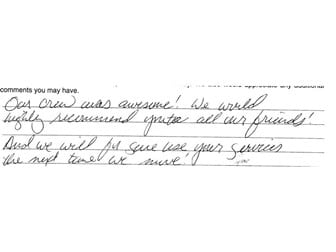 comments you may have.
Our crew was awesome! We would
highly recommend you to all our friends!
And we will for sure use your services
the next time we move!